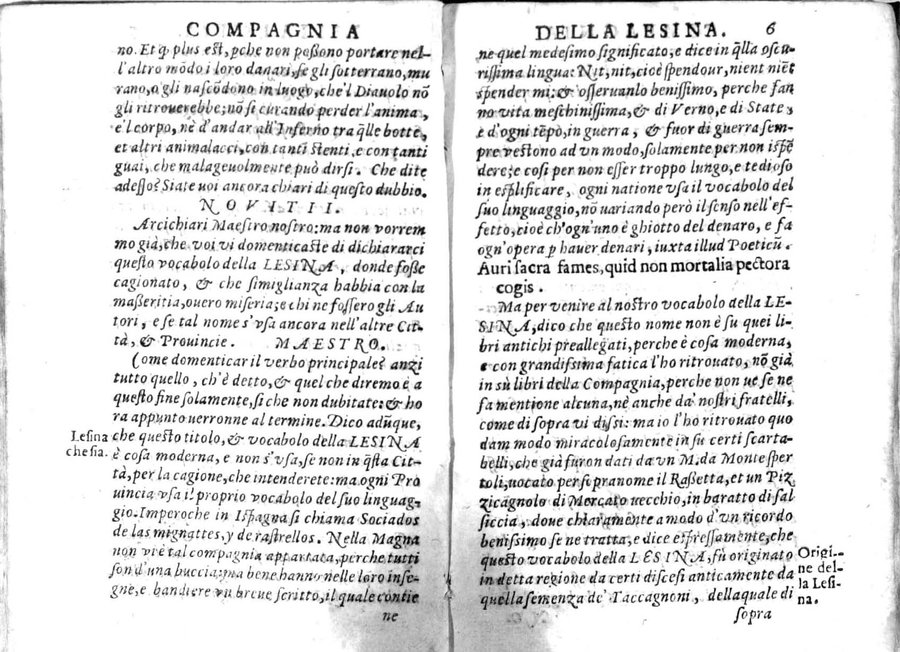 COMPAGNIA
no. Et q̃ plus est, pche non poßono portare nel-
l'altro mõdo i loro danari, se gli sotterrano, mu
rano, o gli nascõdono in luogo, che'l Diauolo nõ
gli ritrouerebbe; nõ si curando perder l'anima,
e'l corpo, nè d'andar all'Inferno tra q̃lle botte,
et altri animalacci, con tanti stenti, e con tanti
guai, che malageuolmente può dirsi. Che dite
adesso? State uoi ancora chiari di questo dubbio.
NOVITII.
Arcichiari Maestro nostro: ma non vorrem
mo già, che voi vi domenticaste di dichiararci
questo vocabolo della LESINA, donde fosse
cagionato, & che simiglianza habbia con la
maßeritia, ouero miseria; e chi ne fossero gli Au
tori, e se tal nome s'vsa ancora nell'altre Cit-
tà, & Prouincie. MAESTRO.
Come domenticar il verbo principale? anzi
tutto quello, ch'è detto, & quel che diremo è a
questo fine solamente, si che non dubitate: & ho
ra appunto uerronne al termine. Dico adũque,
che questo titolo, & vocabolo della LESINA
è cosa moderna, e non s'vsa, se non in q̃sta Cit-
tà, per la cagione, che intenderete: ma ogni Pro
uincia vsa il proprio vocabolo del suo linguag-
gio. Imperoche in Ispagna si chiama Sociados
de las mignattes, y de rastrellos. Nella Magna
non vi è tal compagnia appartata, perche tutti
son d'una buccia: ma bene hanno nelle loro inse-
gne, e bandiere vn breue scritto, il quale contie
ne
Lesina
che sia.
DELLA LESINA. 6
ne quel medesimo significato, e dice in q̃lla oscu-
rissima lingua: Nit, nit, cioè spendour, nient niẽt
spender mi: & osseruanlo benissimo, perche fan
no vita meschinissima, & di Verno, e di State,
e d'ogni tẽpo, in guerra, & fuor di guerra sem-
pre vestono ad un modo, solamente per non ispẽ
dere; e cosi per non esser troppo lungo, e tedioso
in esplificare, ogni natione vsa il vocabolo del
suo linguaggio, nõ uariando però il senso nell'ef-
fetto, cioè ch'ogn'uno è ghiotto del denaro, e fa
ogn'opera p hauer denari, iuxta illud Poeticũ.
Auri sacra fames, quid non mortalia pectora
cogis.
Ma per venire al nostro vocabolo della LE-
SINA, dico che questo nome non è su quei li-
bri antichi preallegati, perche è cosa moderna,
e con grandissima fatica l'ho ritrouato, nõ già
in sù libri della Compagnia, perche non ue se ne
fa mentione alcuna, nè anche da' nostri fratelli,
come di sopra vi dissi: ma io l'ho ritrouato quo
dam modo miracolosamente in su certi scarta-
belli, che già furon dati da vn M. da Montesper
toli, uocato per sopranome il Raßetta, et un Piz
zicagnolo di Mercato uecchio, in baratto di sal
siccia, doue chiaramente a modo d'un ricordo
benissimo se ne tratta, e dice espressamente, che
questo vocabolo della LESINA, fù originato
in detta regione da certi discesi anticamente da
quella semenza de' Taccagnoni, della quale di
sopra
Origi-
ne del-
la Lesi-
na.